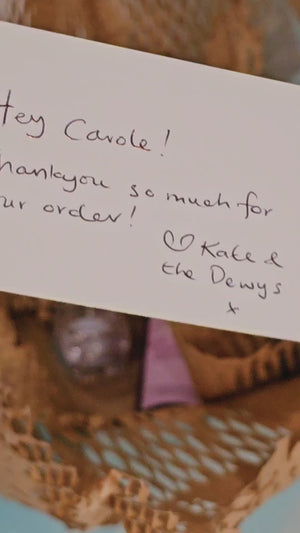 Hey Carole!
Thankyou so much for
your order!
♡ Kate &
the Dewys
x